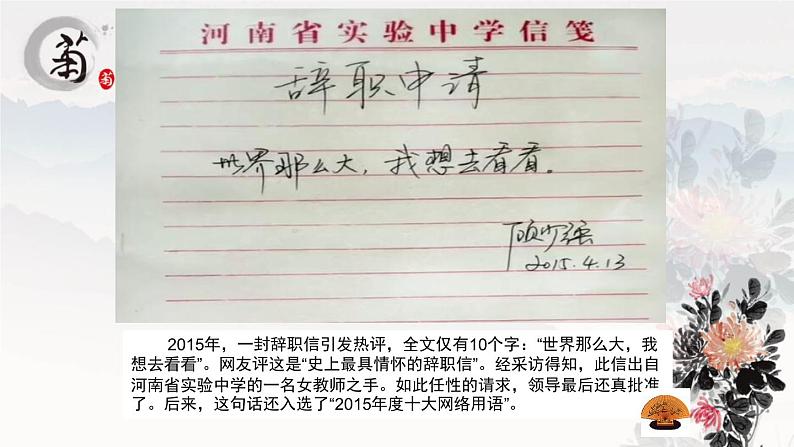 菊
菊
河南省实验中学信笺
辞职申请
世界那么大，我想去看看。
顾少强
2015.4.13
2015年，一封辞职信引发热评，全文仅有10个字：“世界那么大，我
想去看看”。网友评这是“史上最具情怀的辞职信”。经采访得知，此信出自
河南省实验中学的一名女教师之手。如此任性的请求，领导最后还真批准
了。后来，这句话还入选了“2015年度十大网络用语”。